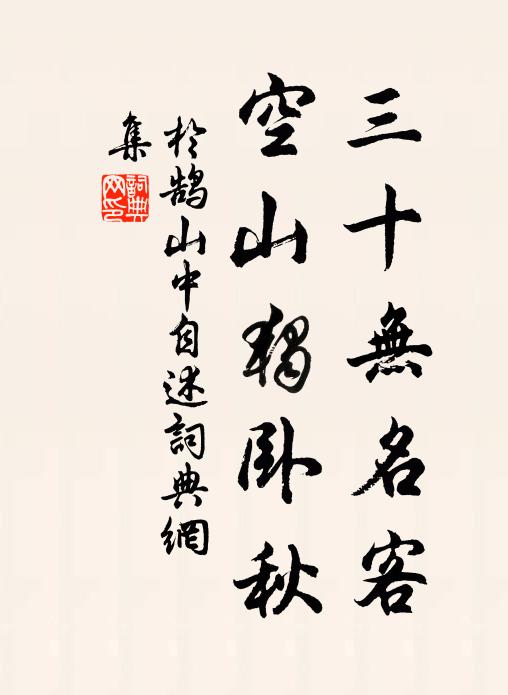 三十無名客
空山獨臥秋
於鵠山中自述詞典網
集
詞典
网印